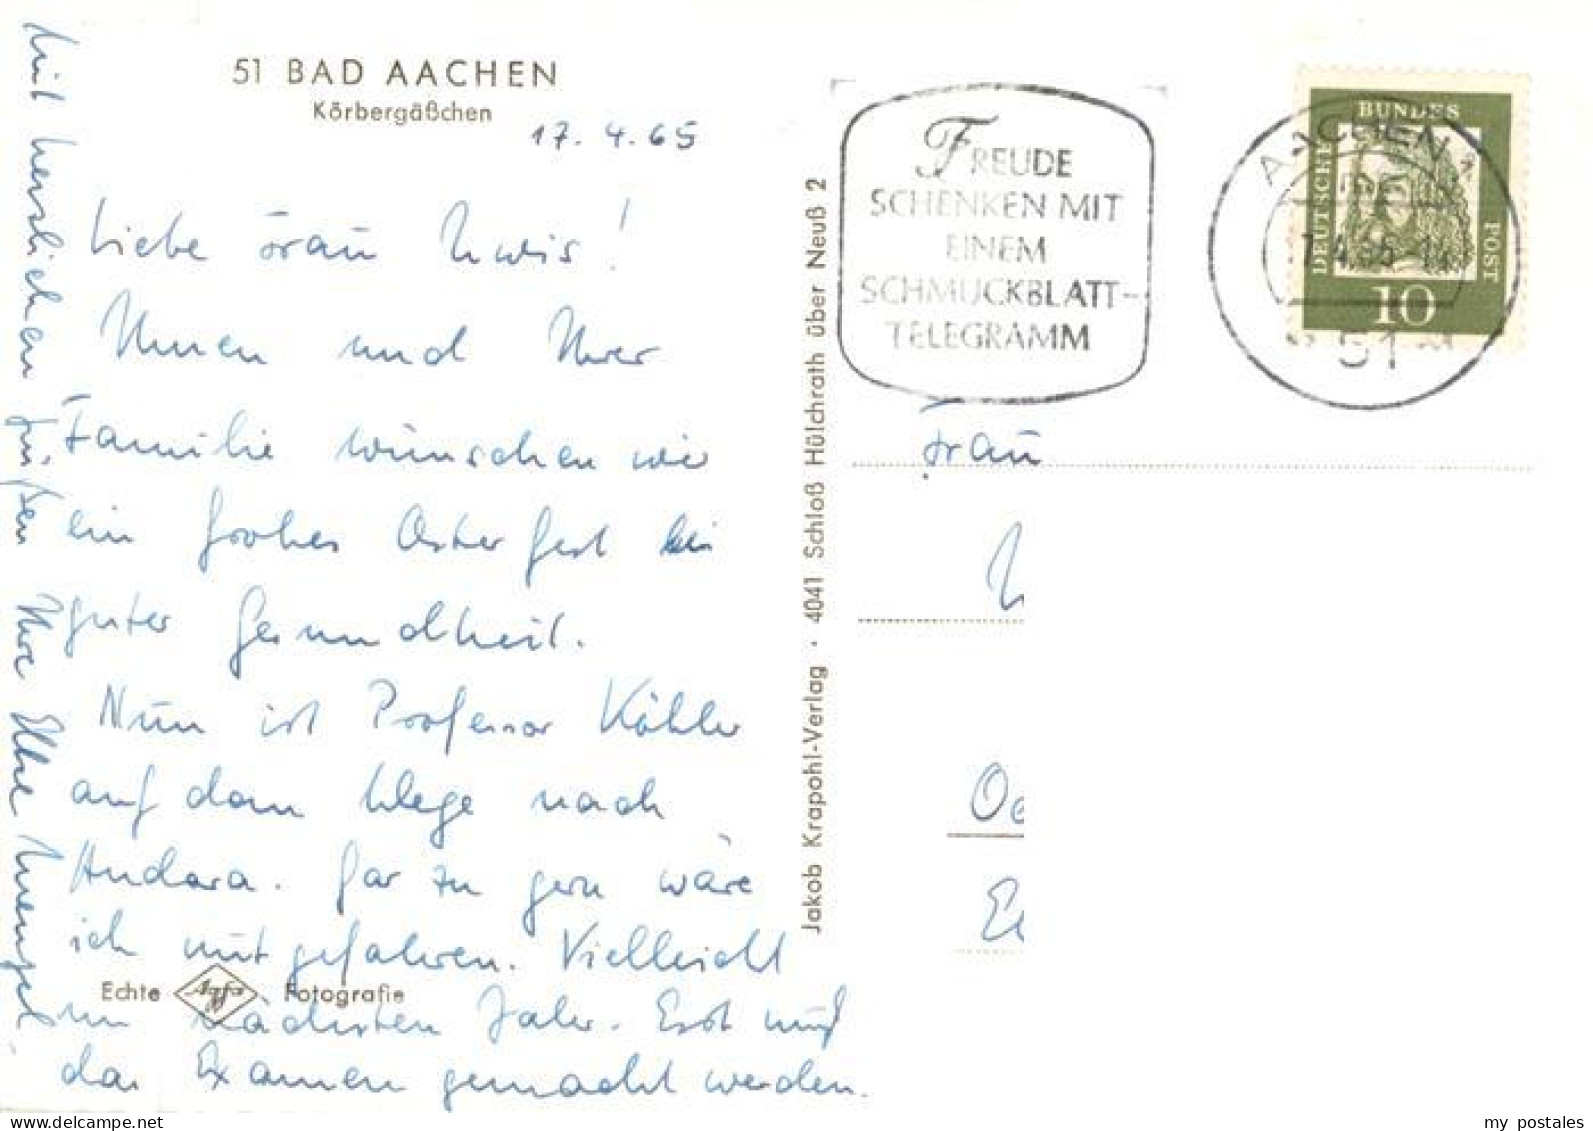 51 BAD AACHEN
Körbergäßchen
17. 4. 65
Liebe Frau
Ihnen und Ihrer
Familie wünschen wir
ein frohes Osterfest bei
guter Gesundheit.
Nun ist Professor Köhler
auf dem Wege nach
Ankara. Gar zu gern wäre
ich mitgefahren. Vielleicht
im nächsten Jahr. Erst muß
das Examen gemacht werden.
Mit herzlichen Grüßen Ihre Elke
Echte Agfa Fotografie
Jakob Krapohl-Verlag · 4041 Schloß Hülchrath über Neuß 2
FREUDE
SCHENKEN MIT
EINEM
SCHMUCKBLATT-
TELEGRAMM
AACHEN
51
DEUTSCHE BUNDESPOST
10
Frau
my postales